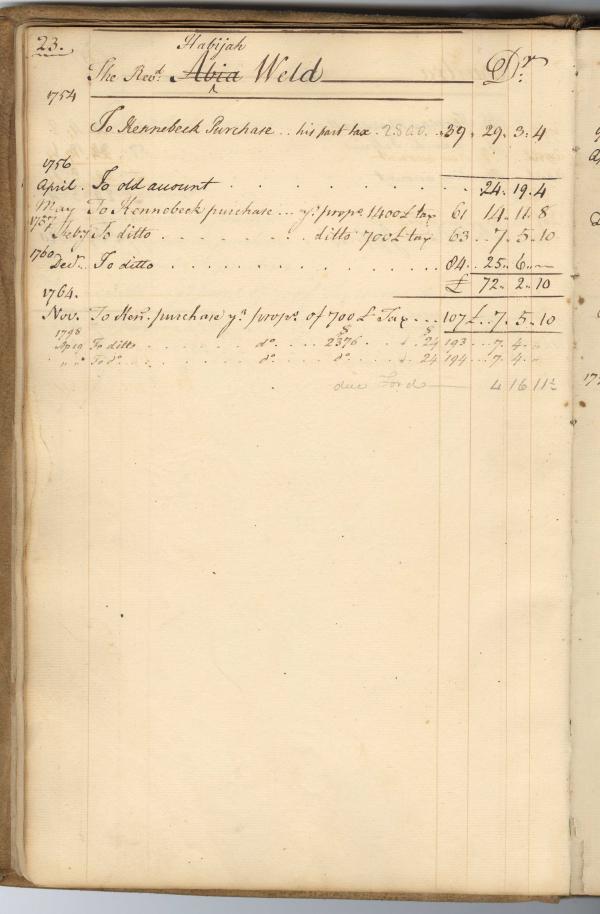 23.
Habijah
The Revd. Abia Weld Dr.
1754
To Kennebeck Purchase .. his part tax . 2800 . . 39 . 29 . 3 . 4
1756
April . To old account . . . . . . . . 24 . 19 . 4
May To Kennebeck purchase ... ye. propn. 1400£ tax 61 14 . 11 . 8
1757
Feby. To ditto . . . . . . . ditto 700£ tax 63 . . 7 . 5 . 10
1760
Decr. To ditto . . . . . . . . . . . . 84 . . 25 . 6 . —
£ 72 . 2 . 10
1764.
Nov. To Ken. purchase ye. propn. of 700£ Tax ... 107 £ . . 7 . 5 . 10
To ditto . . . . do. . . . 2376 . . . 24 193 . . 7 . 4 . "
" " To do. . . . . . do. . . . do. . . . 24 194 . . 7 . 4 . "
4 16 11